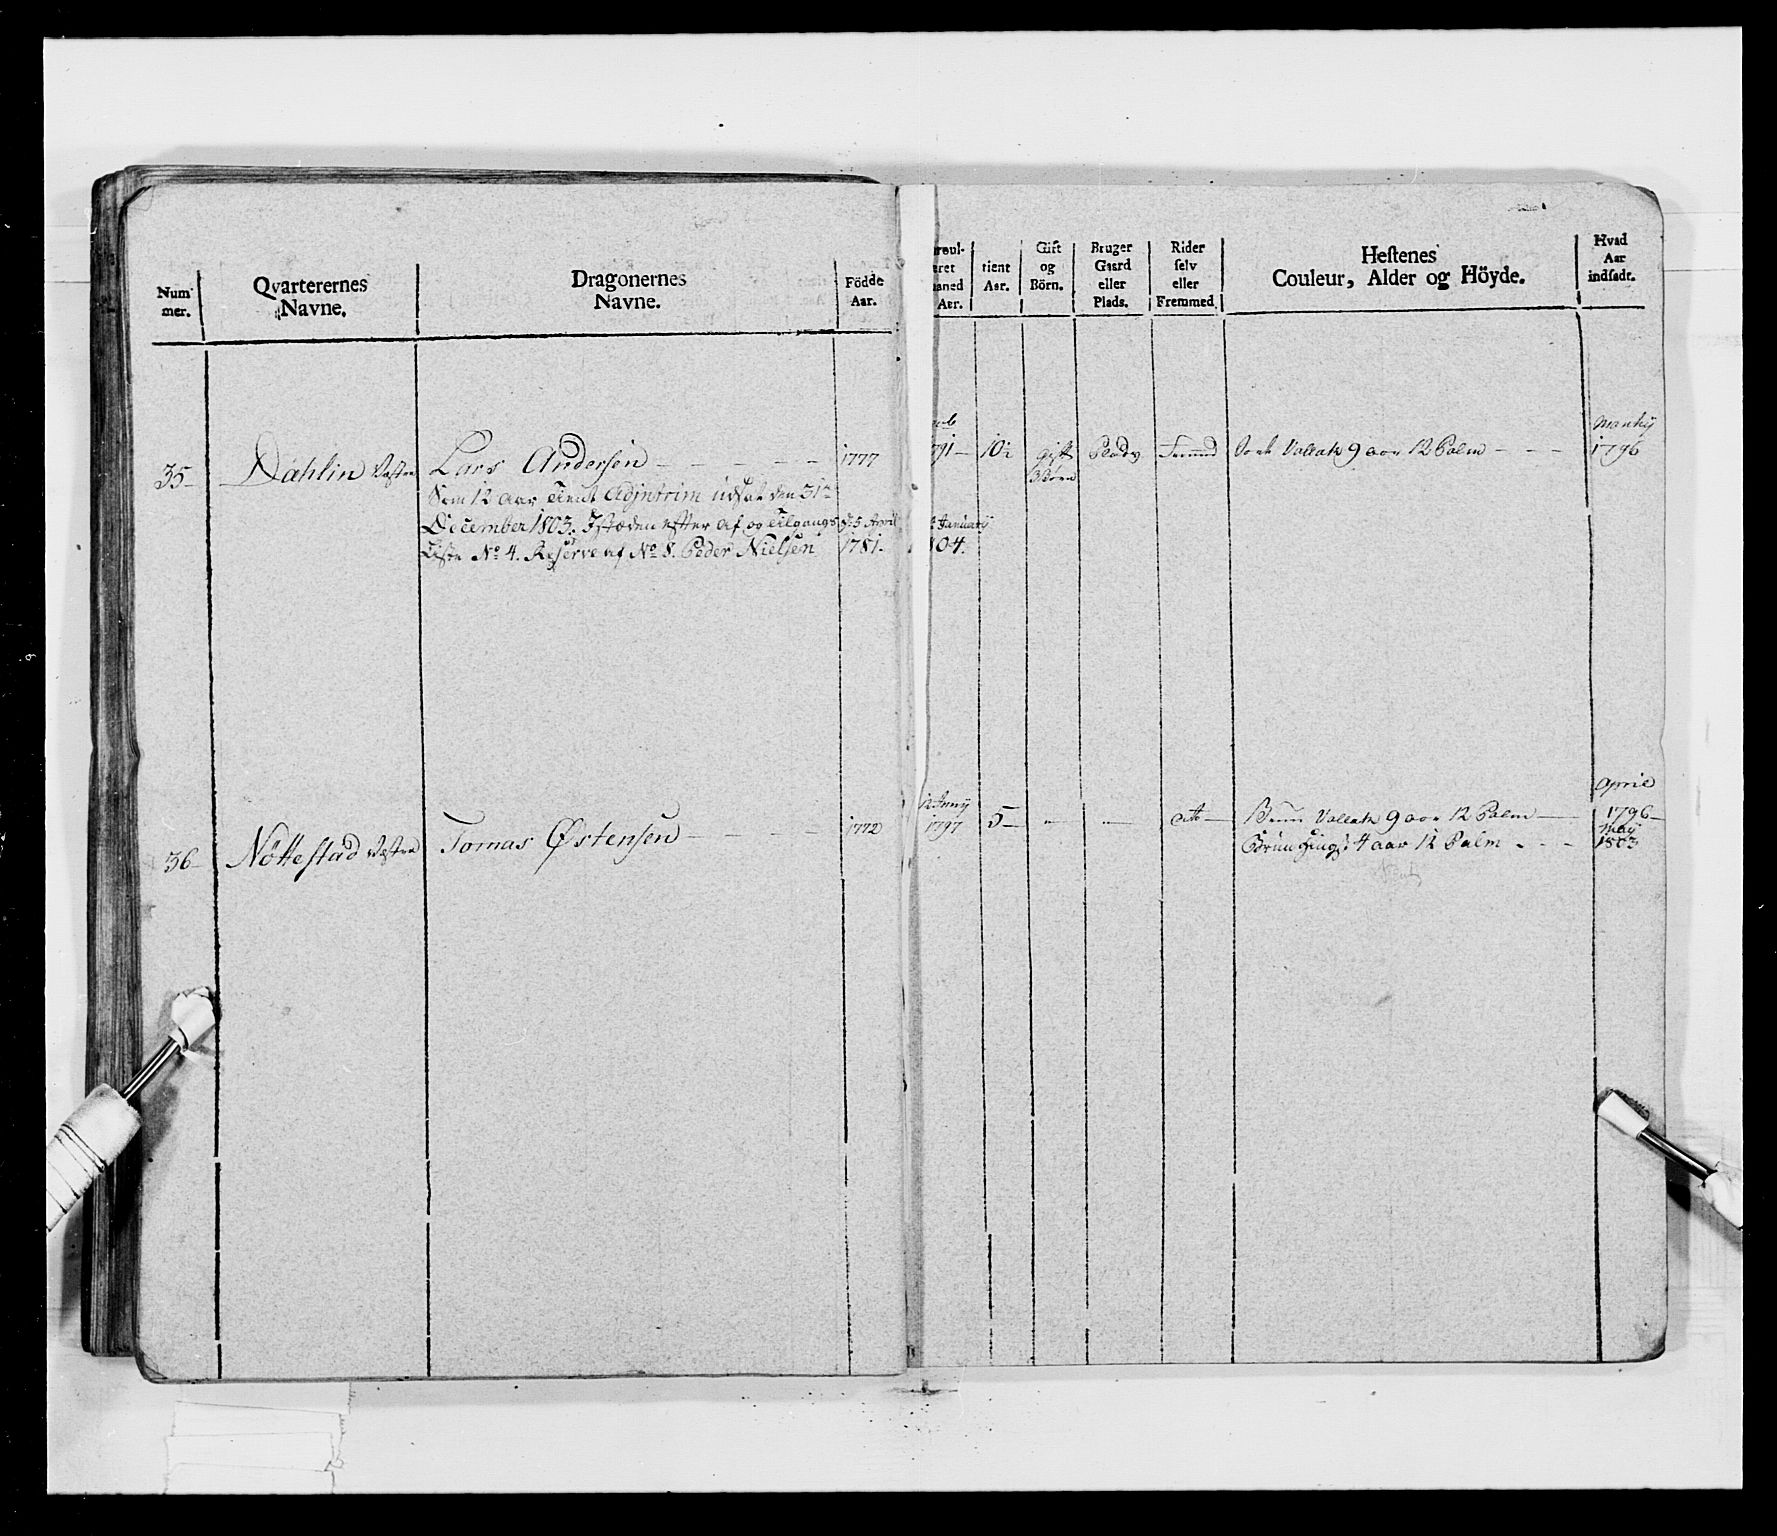 Num mer.
Qvarterernes Navne.
Dragonernes Navne.
Födde Aar.
roul- eret aaned Aar.
tient Aar.
Gift og Börn.
Bruger Gaard eller Plads.
Rider selv eller Fremmed.
Hestenes Couleur, Alder og Höyde.
Hvad Aar indsadt.
35 Dahlin Vestre Lars Andersen 1777 791 10½ Gift 3 Börn Plads Fremmed Sort Vallak 9 aar 12 Palm 1796
Som 12 Aar Tient Adjntrim udsat den 31te
December 1803. Istæden efter Af og Tilgangs D: 5 April January
Liste No 4. Reserve af No 8. Peder Nielsen 1781. 1804.
April
36 Nöttestad Vestre Tomas Östensen 1772 1797 5 dito Brun Vallak 9 aar 12 Palm 1796
Brun Hingst 4 aar 12 Palm May 1803